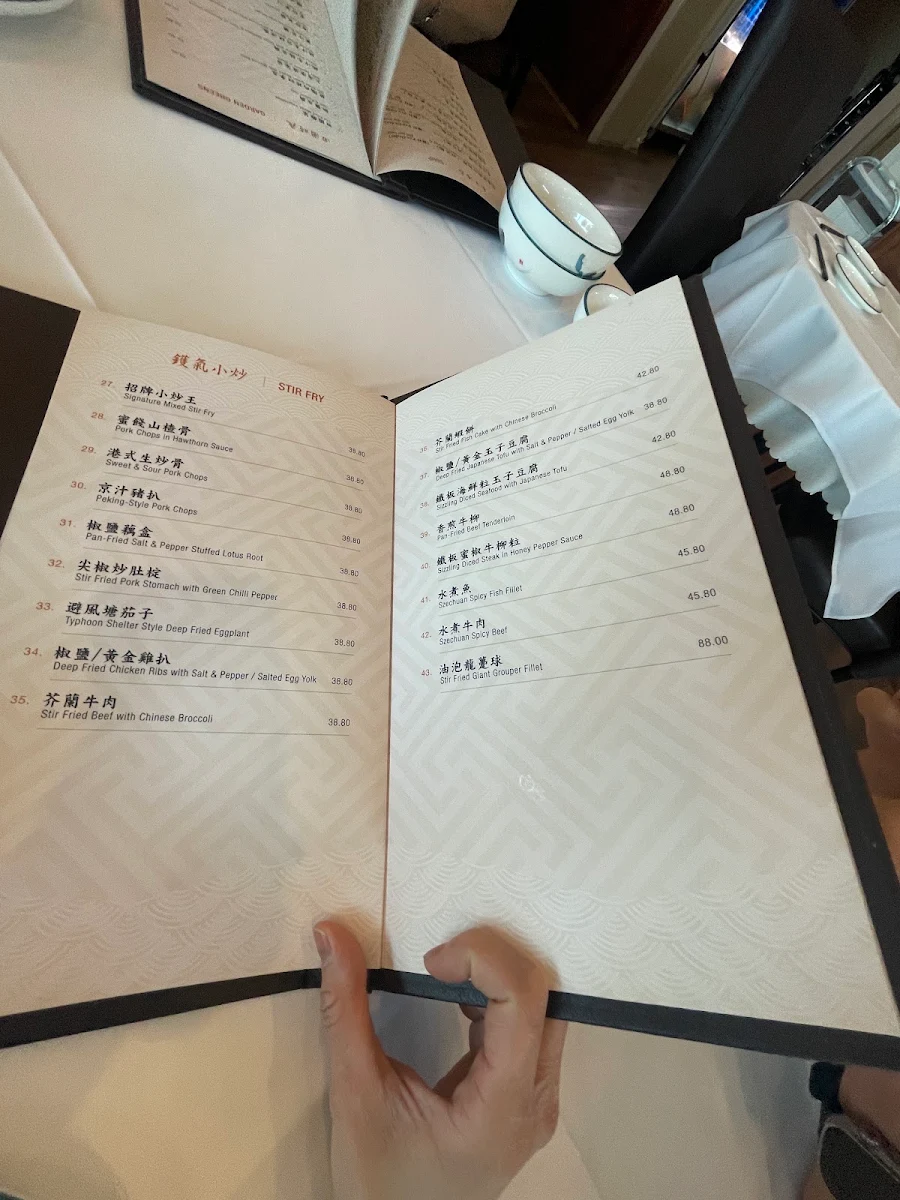 GARDEN GREENS
鑊氣小炒 | STIR FRY
27. 招牌小炒王
Signature Mixed Stir Fry 38.80
28. 蜜餞山楂骨
Pork Chops in Hawthorn Sauce 38.80
29. 港式生炒骨
Sweet & Sour Pork Chops 38.80
30. 京汁豬扒
Peking-Style Pork Chops 38.80
31. 椒鹽藕盒
Pan-Fried Salt & Pepper Stuffed Lotus Root 38.80
32. 尖椒炒肚椗
Stir Fried Pork Stomach with Green Chilli Pepper 38.80
33. 避風塘茄子
Typhoon Shelter Style Deep Fried Eggplant 38.80
34. 椒鹽/黃金雞扒
Deep Fried Chicken Ribs with Salt & Pepper / Salted Egg Yolk 38.80
35. 芥蘭牛肉
Stir Fried Beef with Chinese Broccoli 38.80
36. 芥蘭蝦餅
Stir Fried Fish Cake with Chinese Broccoli 42.80
37. 椒鹽/黃金玉子豆腐
Deep Fried Japanese Tofu with Salt & Pepper / Salted Egg Yolk 38.80
38. 鐵板海鮮粒玉子豆腐
Sizzling Diced Seafood with Japanese Tofu 42.80
39. 香煎牛柳
Pan-Fried Beef Tenderloin 48.80
40. 鐵板蜜椒牛柳粒
Sizzling Diced Steak in Honey Pepper Sauce 48.80
41. 水煮魚
Szechuan Spicy Fish Fillet 45.80
42. 水煮牛肉
Szechuan Spicy Beef 45.80
43. 油泡龍躉球
Stir Fried Giant Grouper Fillet 88.00